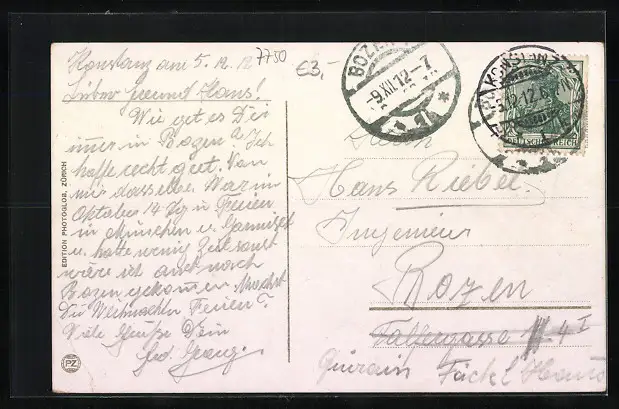 Konstanz am 5.12.12
7750
€3,-
Lieber Freund Hans!
Wie get es Dir
immer in Bozen? Ich
hoffe recht gut. Von
mir dasselbe. War im
Oktober 14 Tg in Ferien
in München u.
u. hatte wenig Zeit sonst
wäre ich auch nach
Bozen gekommen. Machst
Du Weihnachten Ferien?
Viele Grüße Dein
EDITION PHOTOGLOB, ZÜRICH
PZ
BOZEN
-9.XII.12-7
KONSTANZ
5.12.12.6-7N
DEUTSCHES REICH
Herrn
Hans Riebel
Ingenieur
Bozen
4 I